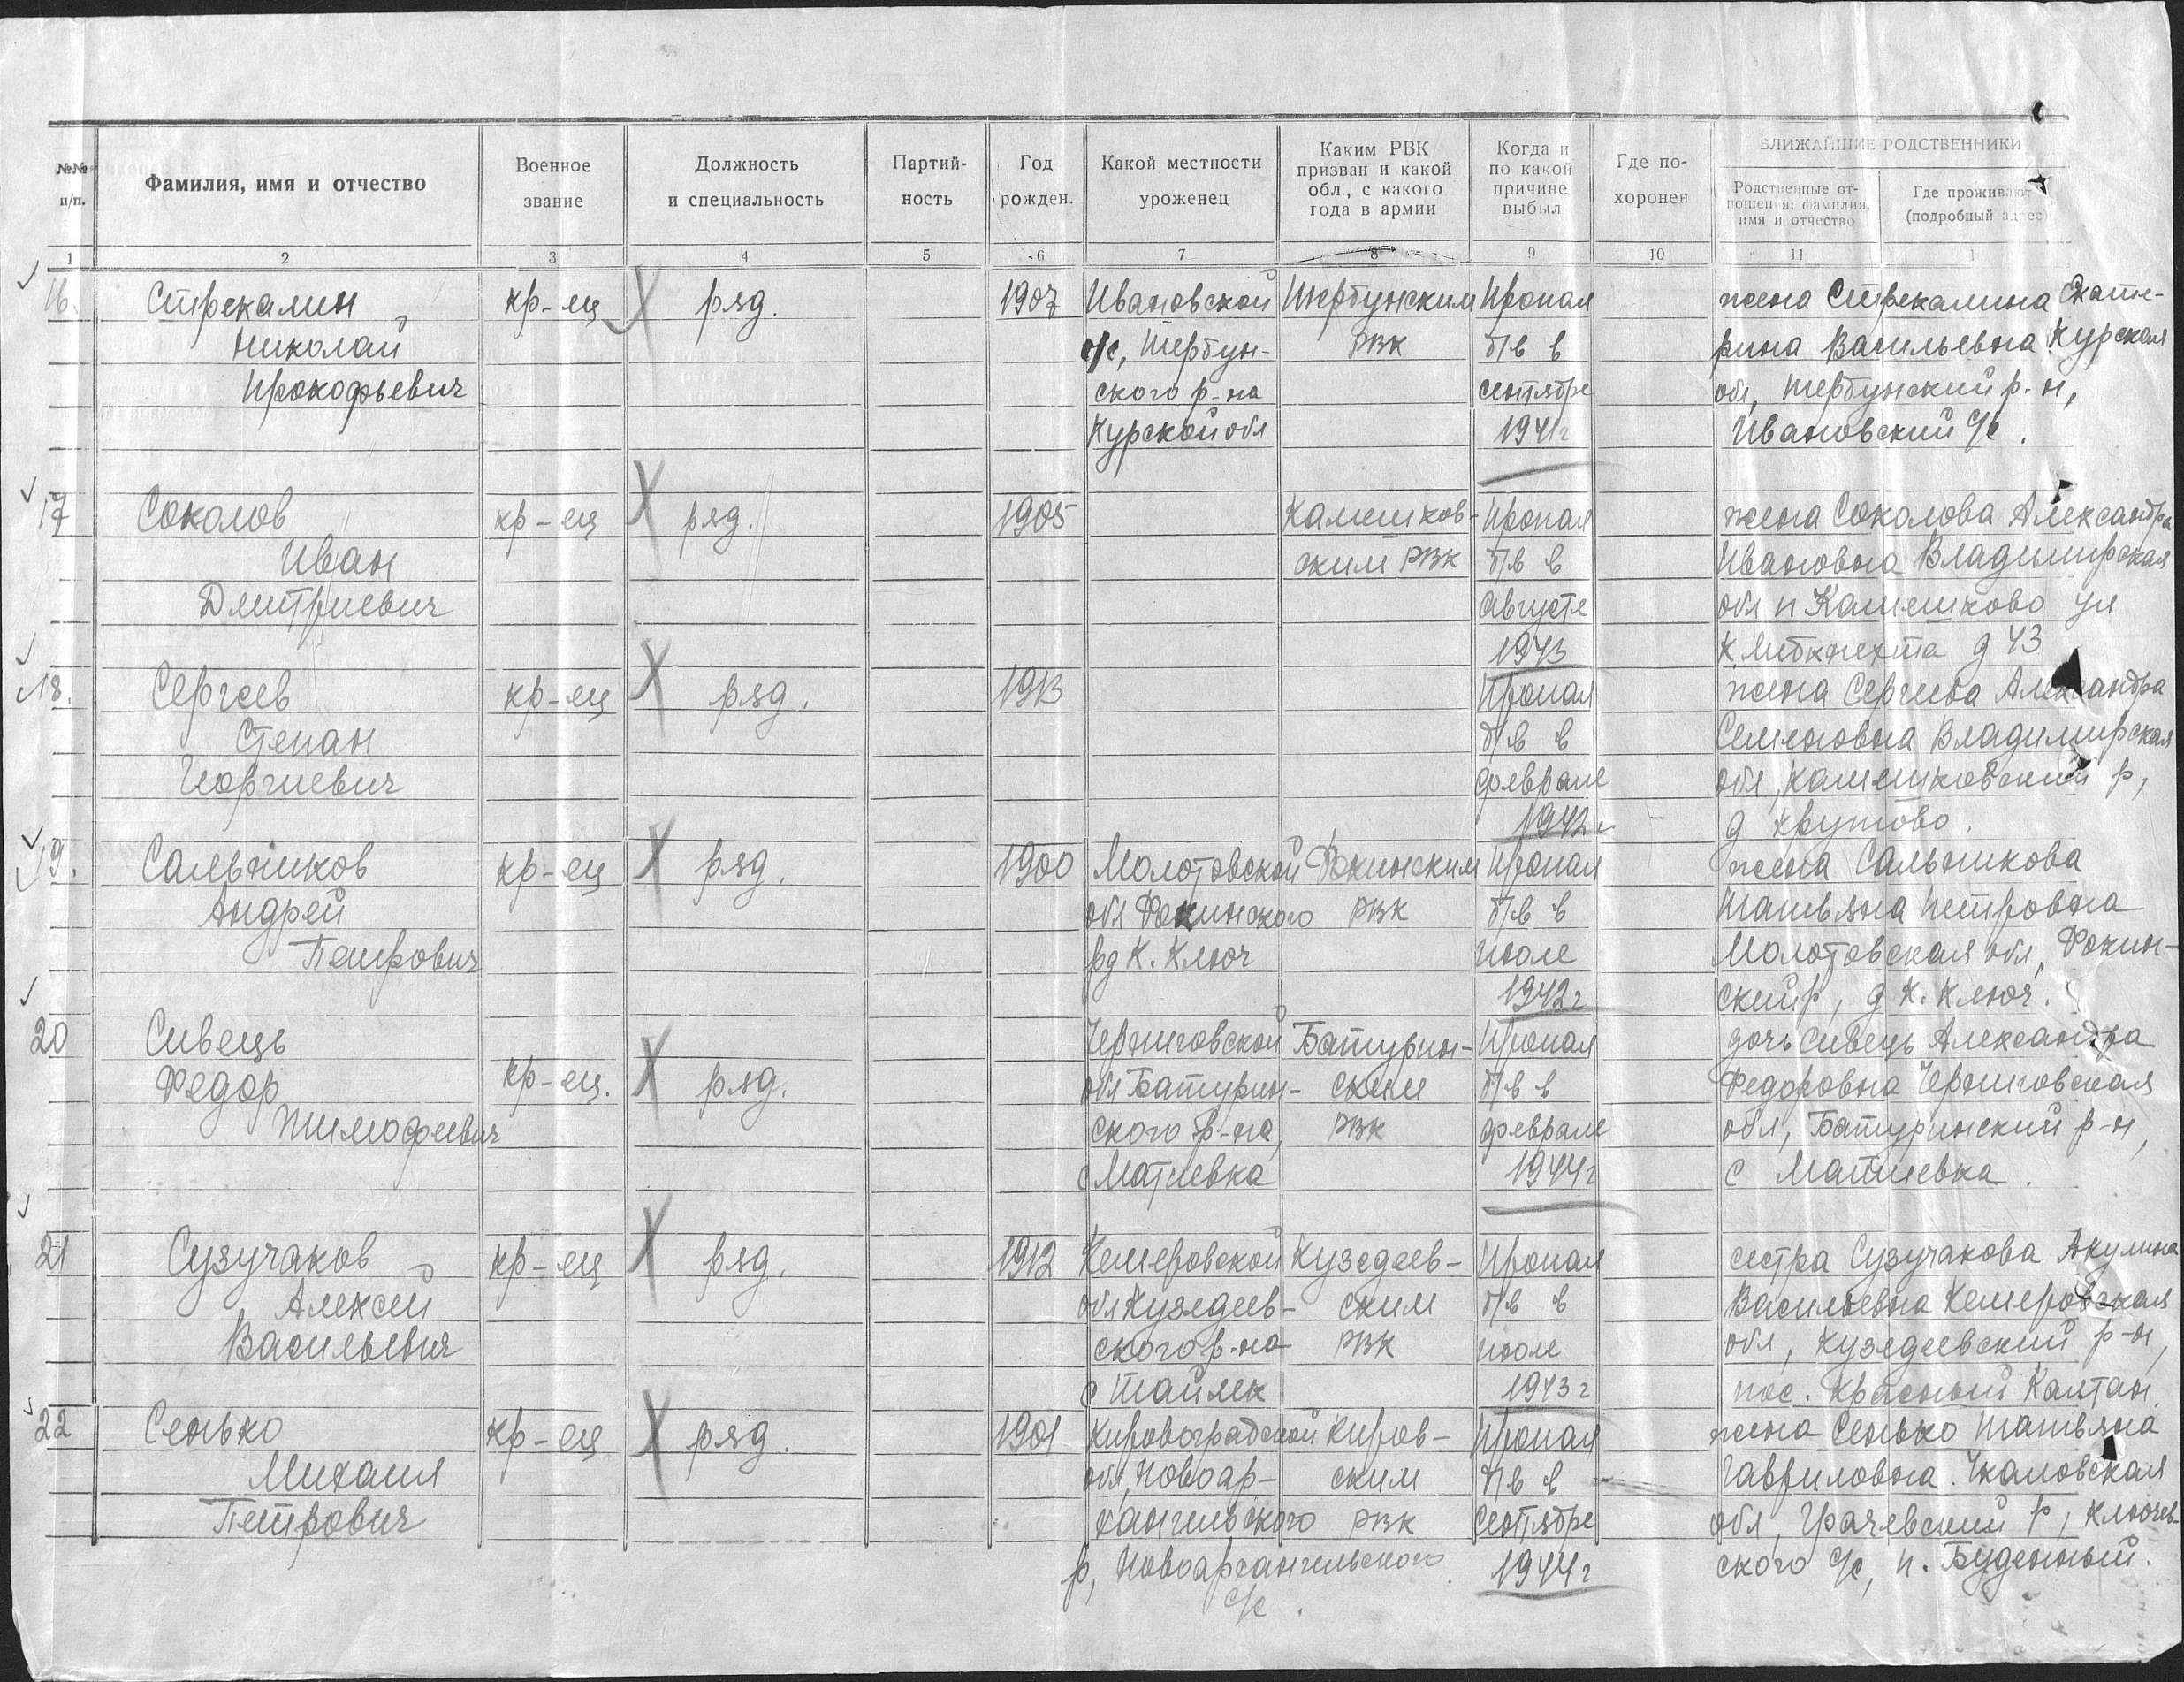 №№ п/п.
Фамилия, имя и отчество
Военное звание
Должность и специальность
Партий-ность
Год рожден.
Какой местности уроженец
Каким РВК призван и какой обл., с какого года в армии
Когда и по какой причине выбыл
Где по-хоронен
БЛИЖАЙШИЕ РОДСТВЕННИКИ
Родственные от-ношения; фамилия, имя и отчество
Где проживают (подробный адрес)
1 2 3 4 5 6 7 8 9 10 11 1
16. Стрекалин кр-ец ряд. 1907 Ивановской Тербунским Пропал жена Стрекалина Екате-
Николай с/с, Тербун- РВК б/в в рина Васильевна Курская
Прокофьевич ского р-на сентябре обл, Тербунский р-н,
Курской обл 1941г Ивановский с/с.
17 Соколов кр-ец ряд. 1905 Камешков- Пропал жена Соколова Александра
Иван ским РВК б/в в Ивановна Владимирская
Дмитриевич августе обл п Камешково ул
1943 К Либкнехта д 43
18. Сергеев кр-ец ряд. 1913 Пропал жена Сергеева Александра
Степан б/в в Семеновна Владимирская
Георгиевич феврале обл, Камешковский р,
1942г д Крутово.
19. Сальников кр-ец ряд. 1900 Молотовской Фокинским Пропал жена Сальникова
Андрей обл Фокинского РВК б/в в Татьяна Петровна
Петрович р д К. Ключ июле Молотовская обл, Фокин-
1942г ский р, д К. Ключ.
20 Сивець Черниговской Батурин- Пропал дочь Сивець Александра
Федор кр-ец. ряд. обл Батурин- ским б/в в Федоровна Черниговская
Тимофеевич ского р-на, РВК феврале обл, Батуринский р-н,
с Матиевка 1944г с Матиевка.
21 Сузучаков кр-ец ряд. 1912 Кемеровской Кузедеев- Пропал сестра Сузучакова Акулина
Алексей обл Кузедеев- ским б/в в Васильевна Кемеровская
Васильевич ского р-на РВК июле обл, Кузедеевский р-н,
с Тайлек 1943г пос. Красный Калтан.
22 Сенько кр-ец ряд. 1901 Кировоградской Киров- Пропал жена Сенько Татьяна
Михаил обл, Новоар- ским б/в в Гавриловна. Чкаловская
Петрович хангельского РВК сентябре обл, Грачевский р, Ключев-
р, Новоархангельского 1944г ского с/с, п. Буденный.
с/с.